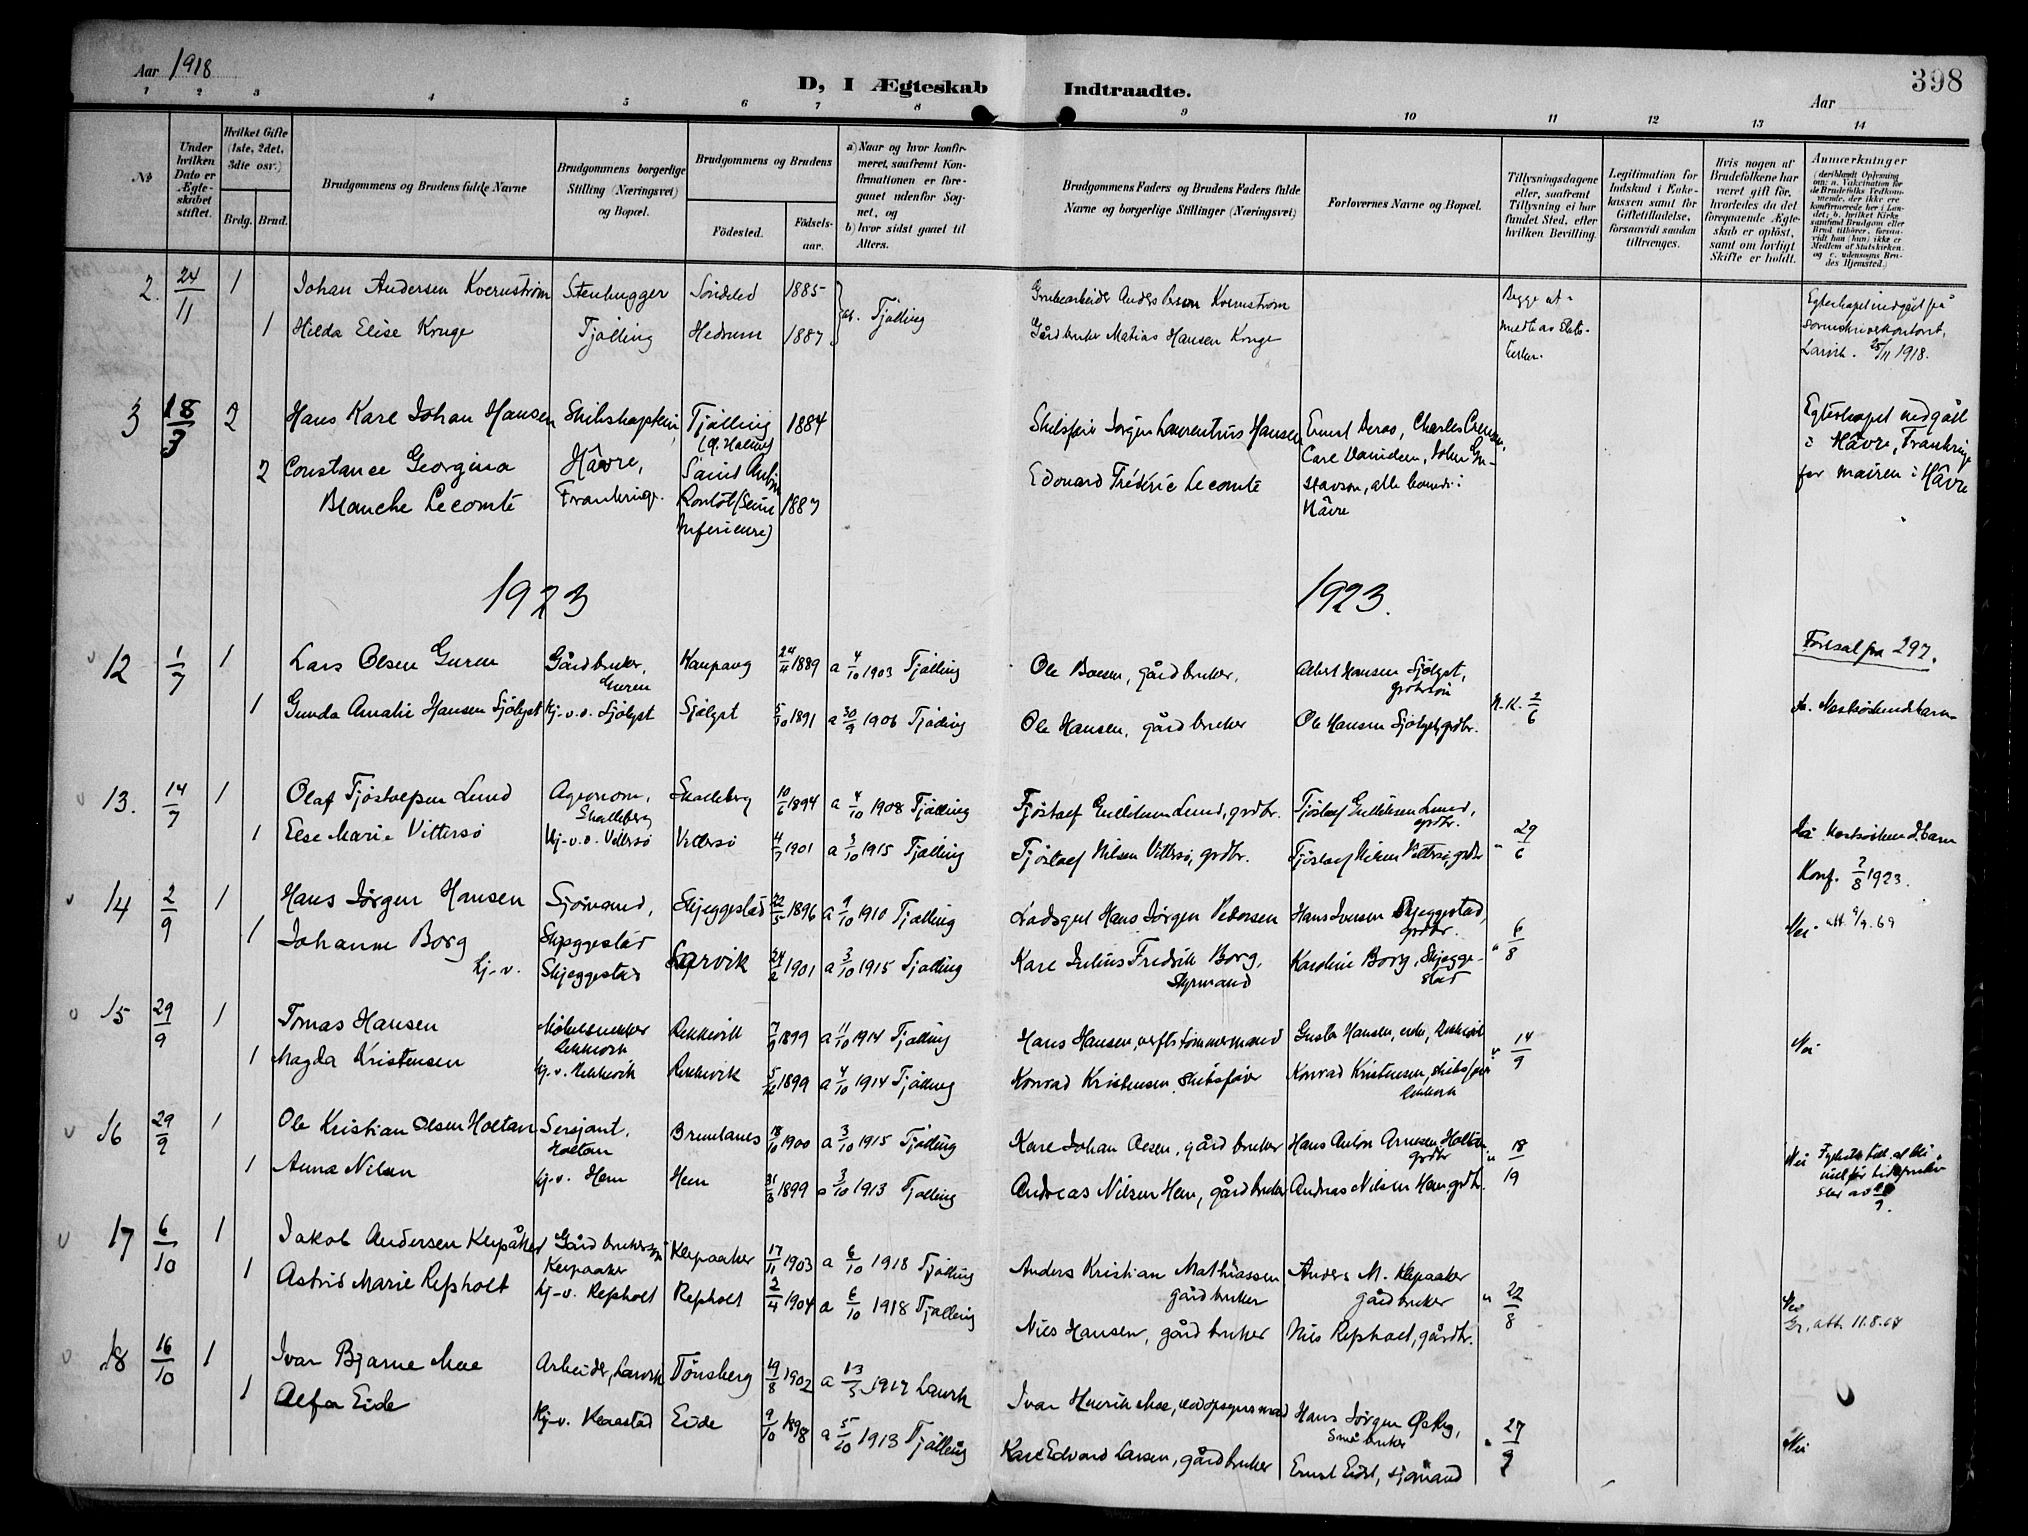 Aar 1918
D, I Ægteskab Indtraadte.
398
Aar
1 2 3 4 5 6 7 8 9 10 11 12 13 14
No
Under hvilken Dato er Ægteskabet stiftet.
Hvilket Gifte (1ste, 2det, 3die osv.)
Brdg. Brud.
Brudgommens og Brudens fulde Navne
Brudgommens borgerlige Stilling (Næringsvei) og Bopæl.
Brudgommens og Brudens
Fødested.
Fødselsaar.
a) Naar og hvor konfirmeret, saafremt Konfirmationen er foregaaet udenfor Sognet, og
b) hvor sidst gaaet til Alters.
Brudgommens Faders og Brudens Faders fulde Navne og borgerlige Stillinger (Næringsvei)
Forlovernes Navne og Bopæl.
Tillysningsdagene eller, saafremt Tillysning ei har fundet Sted, efter hvilken Bevilling.
Legitimation for Indskud i Enkekassen samt for Giftetilladelse, forsaavidt saadan tiltrænges.
Hvis nogen af Brudefolkene har været gift før, hvorledes da det foregaaende Ægteskab er opløst, samt om lovligt Skifte er holdt.
Anmærkninger
2. 24/11 1 Johan Andersen Kvernstrøm Stenhugger Søndeled 1885 Tjølling Grubearbeider Anders Kvernstrøm Begge ut-
1 Hilda Elise Kruge Tjølling Hedrum 1887 Gårdbruker Matias Hansen meldt av Stats-
Egteskapet indgåt på
Sorenskriverkontoret,
Larvik. 25/11 1918.
3 18/3 2 Hans Karl Johan Hansen Skibskaptein, Tjølling 1884 Jørgen Laurentius Hansen Ernst Charles
2 Constance Georgina Hâvre, Saint
Blanche Lecomte Frankrige. (Seine 1887 Edouard Fréderic Lecomte
Inferieure) Hâvre
Egteskapet indgått
i Hâvre, Frankrige
for mairen i Hâvre
1923 1923.
12 1/7 1 Lars Olsen Guren Gårdbruker, Guren Kaupang 1889 a 4/10 1903 Tjølling Ole gårdbruker, Albert Hansen Sjølyst,
1 Gunda Amalie Hansen Sjølyst Kj-v.o. Sjølyst Sjølyst 5/10 1891 a 30/9 1906 Tjølling Ole Hansen, gårdbruker Ole Hansen Sjølyst, grdbr. N.K. 2/6
297.
13. 14/7 1 Olaf Tjøstolfsen Lund Agronom, Skalleberg Skalleberg 10/6 1894 a 4/10 1908 Tjølling Tjøstolf Gulliksen Lund, grdbr. Tjøstolf Gulliksen Lund, grdbr.
1 Else Marie Vittersø Kj-v.o. Vittersø Vittersø 4/7 1901 a 3/10 1915 Tjølling Tjøstolf Nilsen Vittersø, grdbr. Tjøstolf Nilsen Vittersø, grdbr " 29/6
Konf. 2/8 1923.
14 2/9 1 Hans Jørgen Hansen Sjømand, Skjeggestad Skjeggestad 22/5 1896 a 9/10 1910 Tjølling Hans Jørgen Pedersen Hans Iversen Skjeggestad, grdbr.
1 Johanne Borg kj-v. Skjeggestad Larvik 24/2 1901 a 3/10 1915 Tjølling Karl Julius Fredrik Borg, Styrmand Karoline Borg, Skjeggestad " 6/8
Nei. att. 9/9.69
15 29/9 1 Tomas Hansen Møbelsnekker Rekkevik Rekkevik 7/9 1899 a 11/10 1914 Tjølling Hans Hansen, verfts tømmermand Hansen, enke, Rekkevik
1 Magda Kristensen kj.-v. Rekkevik Rekkevik 5/12 1899 a 4/10 1914 Tjølling Konrad Kristensen, skibsfører Konrad Kristensen, skibsfører " 14/9
Nei
16 29/9 1 Ole Kristian Olsen Holtan Sersjant, Holtan Bremlanes 18/10 1900 a 3/10 1915 Tjølling Karl Johan Olsen, gårdbruker Hans Anton Arnesen, Holtan grdbr
1 Anna Nilsen kj-v. Hem Hem 31/3 1899 a 3/10 1913 Tjølling Andreas Nilsen Hem, gårdbruker Andreas Nilsen Hem grdbr. " 18/19
Nei
17 6/10 1 Jakob Andersen Klepåker Gårdbrukersøn Klepaaker Klepaaker 17/11 1903 a 6/10 1918 Tjølling Anders Kristian Mathiassen, gårdbruker Anders M. Klepaaker gårdbruker
1 Astrid Marie Refsholt kj-v. Refsholt Refsholt 2/4 1904 a 6/10 1918 Tjølling Nils Hansen, gårdbruker Nils Refsholt, gårdbr. " 22/8
Nei
att. 11.8.67
18 16/10 1 Ivar Bjarne Moe Arbeider, Larvik Tønsberg 19/8 1902 a 13/3 1917 Larvik Ivar Henrik Moe, Hans Jørgen Østby, Småbruker
1 Alfa Eide Kj-v. Klaastad Eide 9/10 1898 a 5/10 1913 Tjølling Karl Edvard Larsen, gårdbruker Ernst Eide, sjømand " 27/9
Nei